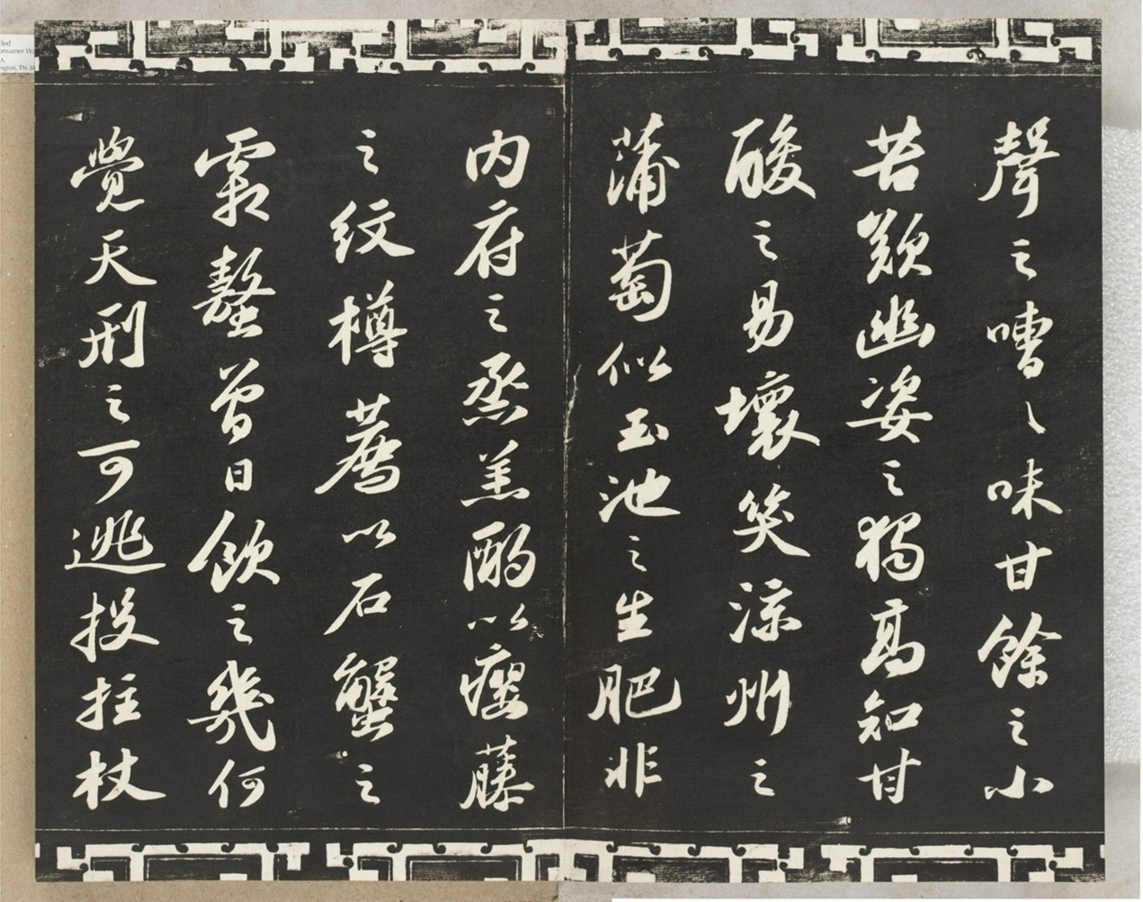 聲之嘈々味甘餘之小
苦歎幽姿之獨高知甘
酸之易壞笑涼州之
蒲萄似玉池之生肥非
内府之烝羔酌以癭藤
之紋樽薦以石蟹之
霜螯曾日飲之幾何
覺天刑之可逃投拄杖